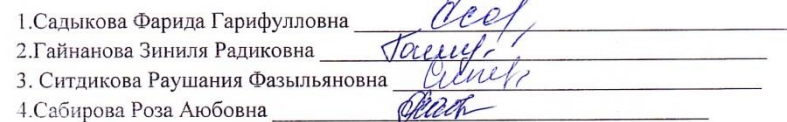 1.Садыкова Фарида Гарифулловна
2.Гайнанова Зиниля Радиковна
3. Ситдикова Раушания Фазыльяновна
4.Сабирова Роза Аюбовна